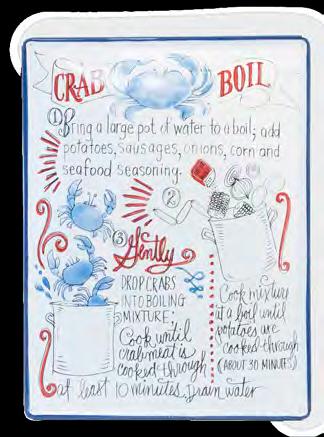 CRAB BOIL
① Bring a large pot of water to a boil; add
potatoes, sausages, onions, corn and
seafood seasoning.
②
Cook mixture
at a boil until
potatoes are
cooked through
(ABOUT 30 MINUTES)
③ Gently
DROP CRABS
INTO BOILING
MIXTURE;
Cook until
crabmeat is
cooked through
at least 10 minutes, Drain water